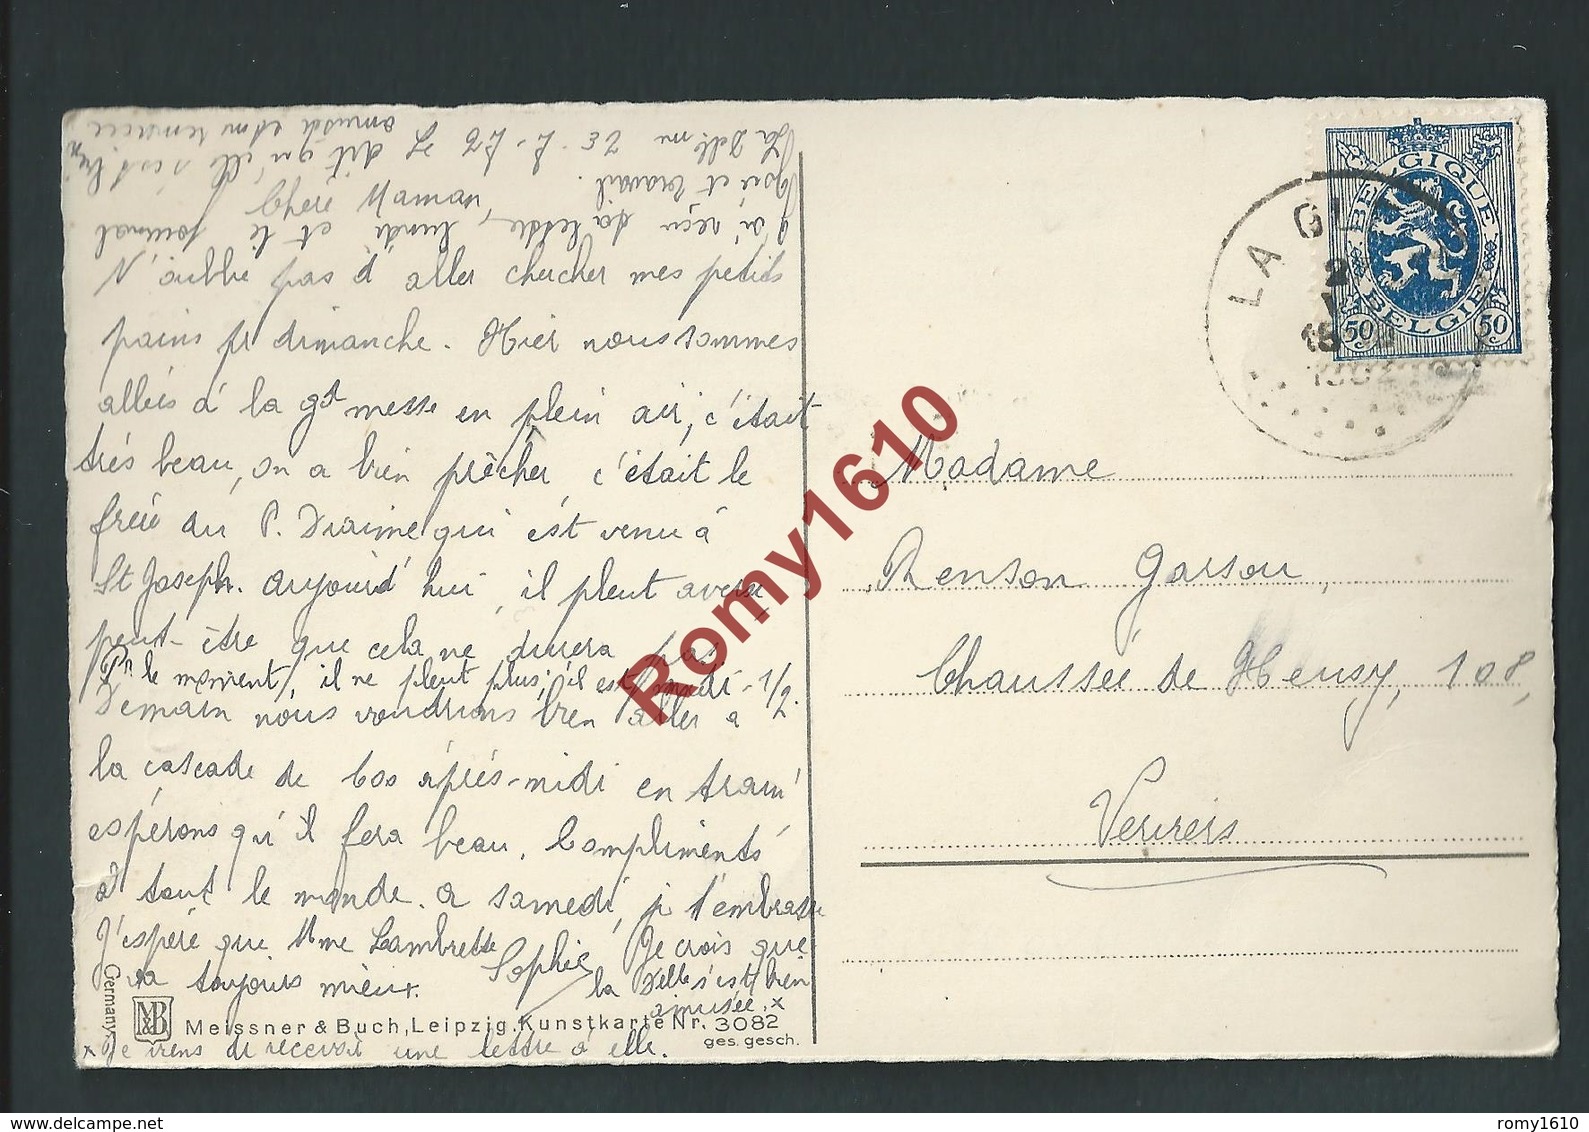 La Gl. 23-7-29
Chère Maman,
N'oublie pas d'aller chercher mes petits
pains pr dimanche. Hier nous sommes
allées à la gd messe en plein air, c'était
très beau, on a bien prêcher, c'était le
frère du P. qui est venu à
St Joseph. aujourd'hui, il pleut averse
peut-être que cela ne durera pas
Pr le moment, il ne pleut plus, il est midi-1/2.
Demain nous voudrions bien aller à
la cascade de Coo après-midi en tram
espérons qu'il fera beau. Compliments
à tout le monde. a samedi, je t'embrasse
Sophie
J'espère que Mme Lambrette
va toujours mieux.
Je crois que
la Delle s'est bien
amusée, x
x Je viens de recevoir une lettre à elle.
dit qu'elle s'est bien
amusée et me remercie
J'ai reçu ta lettre, lundi et le journal
Soir et travail.
Madame
Renson Garsou,
Chaussée de Heusy, 108,
Verviers
LA GL
BELGIQUE
BELGIE
50 50
Germany
M&B
Meissner & Buch, Leipzig. Kunstkarte Nr. 3082
ges. gesch.
Romy1610
www.delcampe.net
romy1610